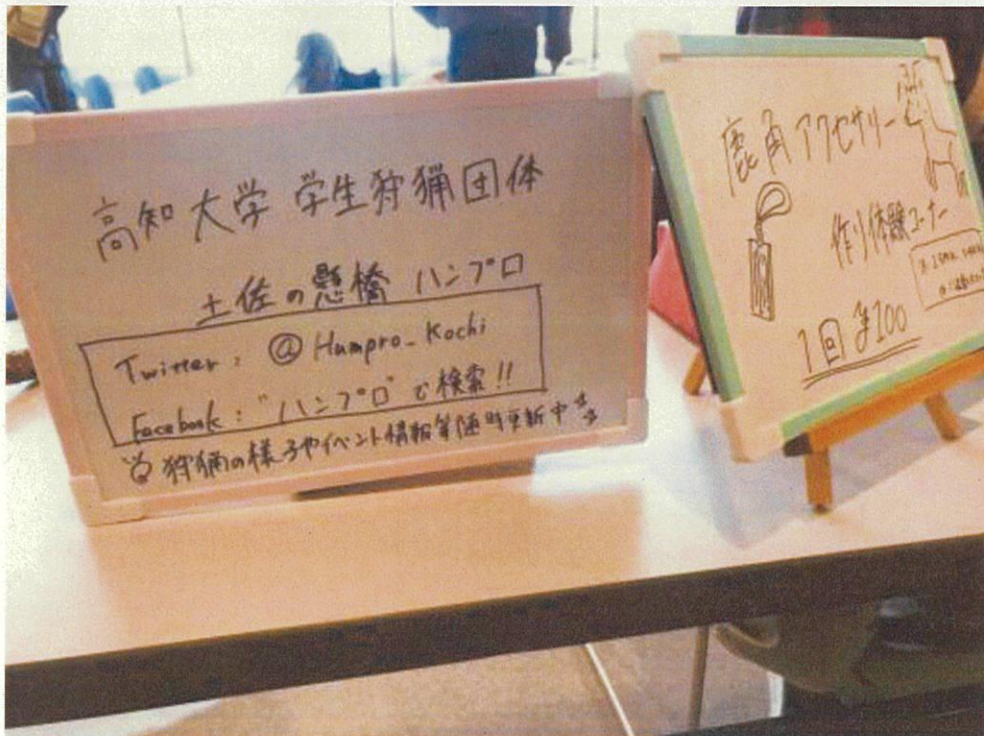 高知大学 学生狩猟団体
土佐の懸橋 ハンプロ
Twitter: @Humpro_Kochi
Facebook: "ハンプロ" で検索!!
狩猟の様子やイベント情報等随時更新中
鹿角アクセサリー
作り体験コーナー
1回 ¥100